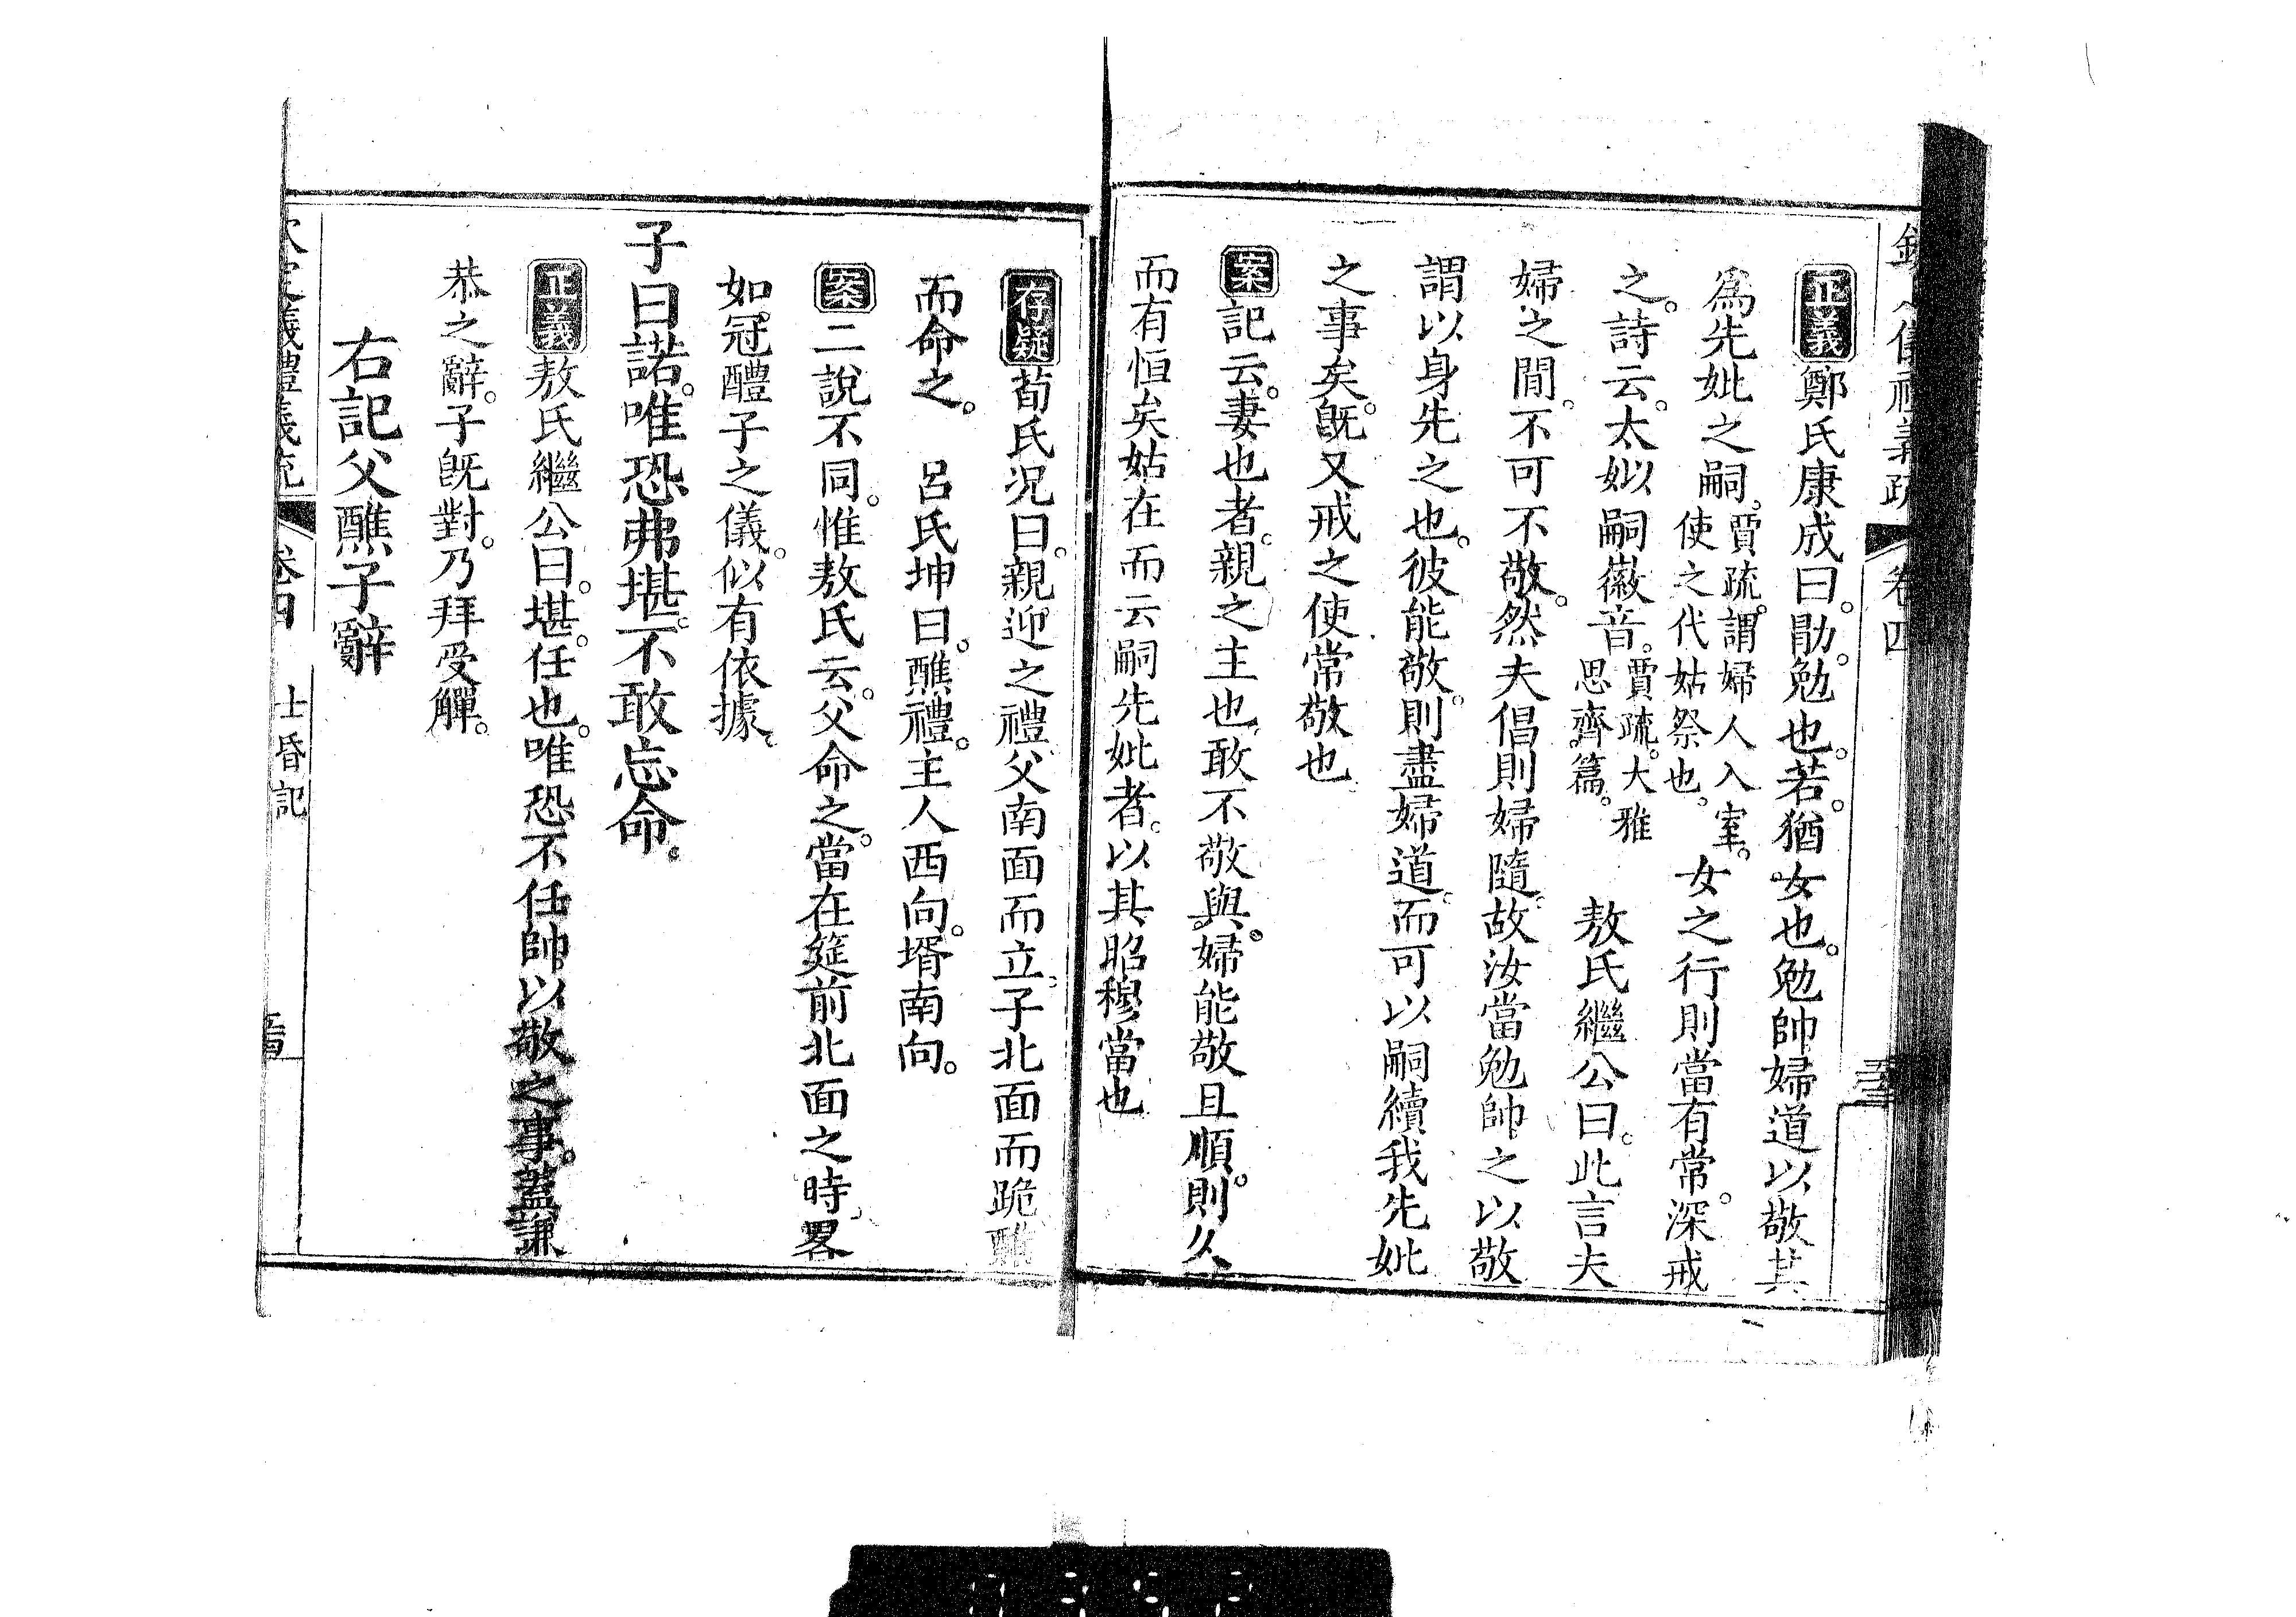 卷四
正義鄭氏康成曰。勖。勉也。若。猶女也。勉帥婦道以敬其
為先妣之嗣。賈疏。謂婦人入室。使之代姑祭也。女之行則當有常。深戒
之。詩云。太姒嗣徽音。賈疏。大雅思齊篇。 敖氏繼公曰。此言夫
婦之間。不可不敬。然夫倡則婦隨。故汝當勉帥之以敬
謂以身先之也。彼能敬。則盡婦道。而可以嗣續我先妣
之事矣。旣又戒之使常敬也
案記云。妻也者。親之主也。敢不敬與。婦能敬且順。則久
而有恒矣姑在而云嗣先妣者。以其昭穆當也
存疑荀氏況曰。親迎之禮父南面而立。子北面而跪醮
而命之。 呂氏坤曰。醮禮。主人西向。壻南向。
案二說不同。惟敖氏云。父命之。當在筵前北面之時畧
如冠醴子之儀。似有依據。
子曰諾。唯恐弗堪。不敢忘命。
正義敖氏繼公曰。堪。任也。唯恐不任帥以敬之事。蓋謙
恭之辭。子旣對。乃拜受觶。
右記父醮子辭
士昏記